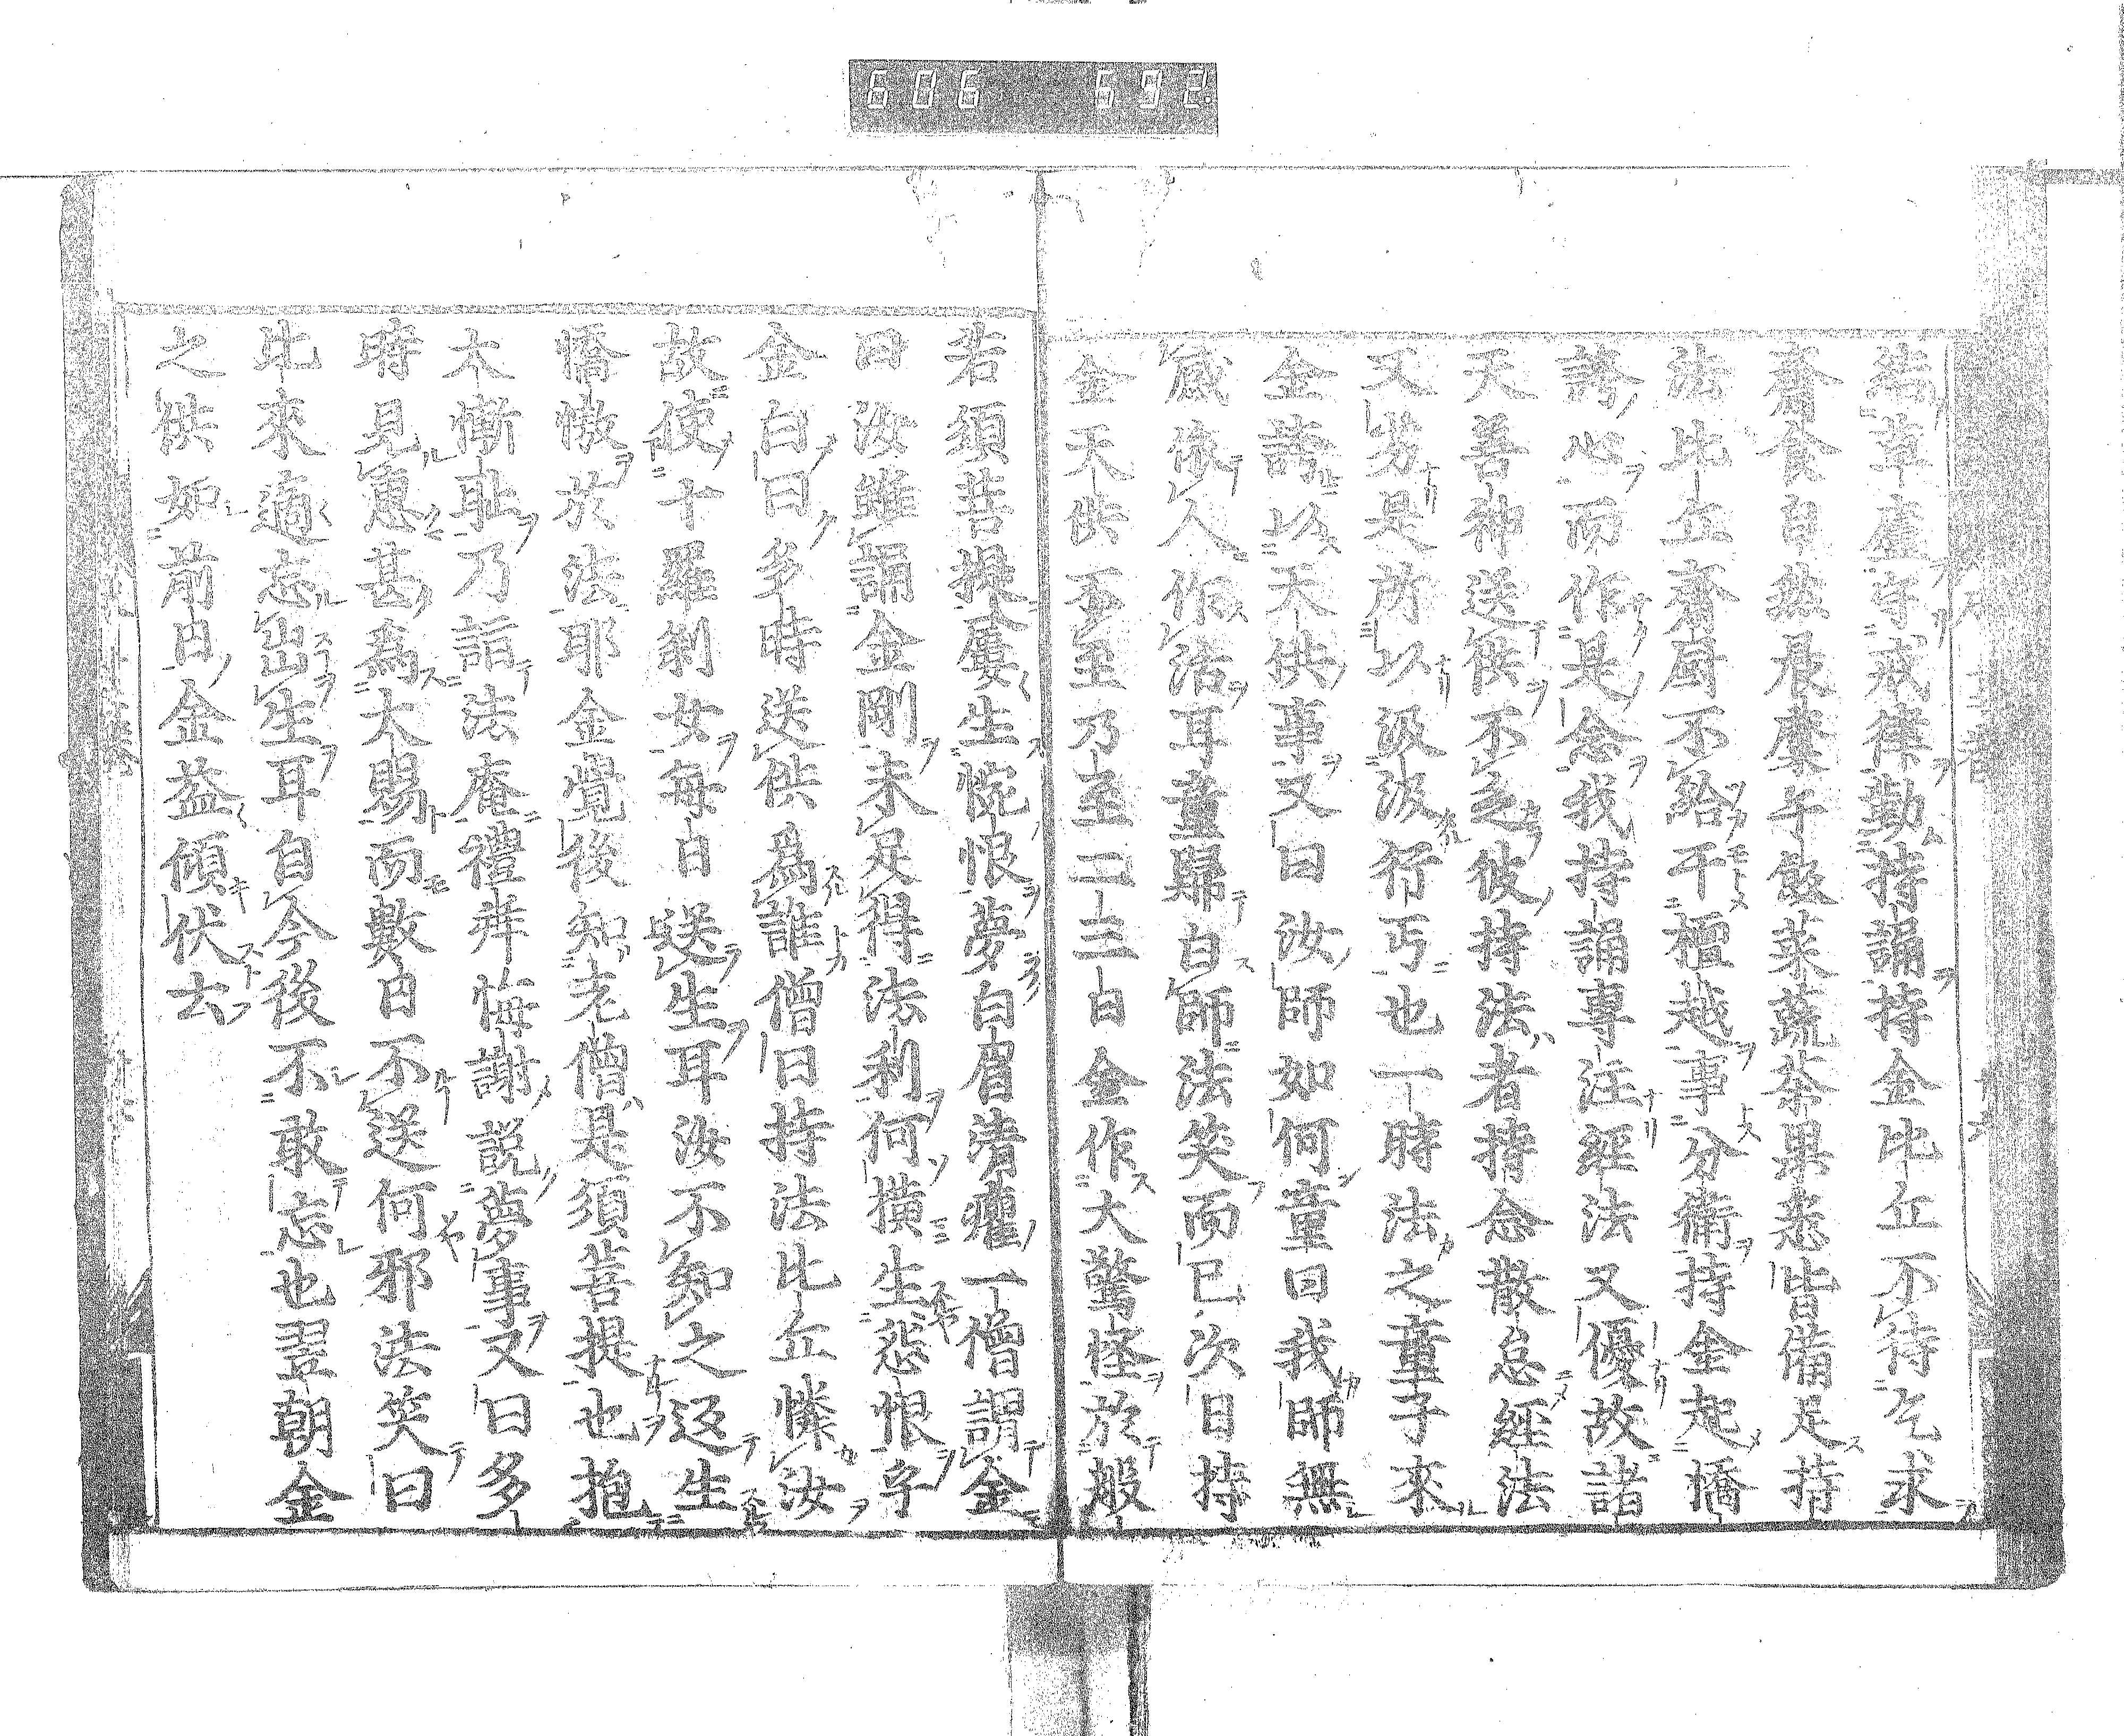 606 692
結草廬守戒律勤持誦持金比丘不待乞求
齋食自然晨麋午飯菜蔬茶果悉皆備足持
法比丘齋厨不給干檀越事分衛持金起憍
誇心而作是念我持誦專注經法又優故諸
天善神送供不乏彼持法者持念散怠經法
又劣是所以汲汲行丐也一時法之童子來
金誇以天供事又曰汝師如何童曰我師無
感依人作活耳童歸白師法笑而已次日持
金天供不至乃至二三日金作大驚怪於般
若須菩提屢生惋恨夢白眉清癯一僧謂金
曰汝雖誦金剛未足得法利何橫生愁恨乎
金白曰多時送供爲誰僧曰持法比丘憐汝
故使十羅刹女每日送生耳汝不知之返生
憍慠於法耶金覺後知老僧是須菩提也抱
大慚耻乃詣法庵禮拜悔謝説夢事又曰多
時見惠甚爲大賜而數日不送何邪法笑曰
比來適忘出生耳自今後不敢忘也翌朝金
之供如前日金益傾伏去